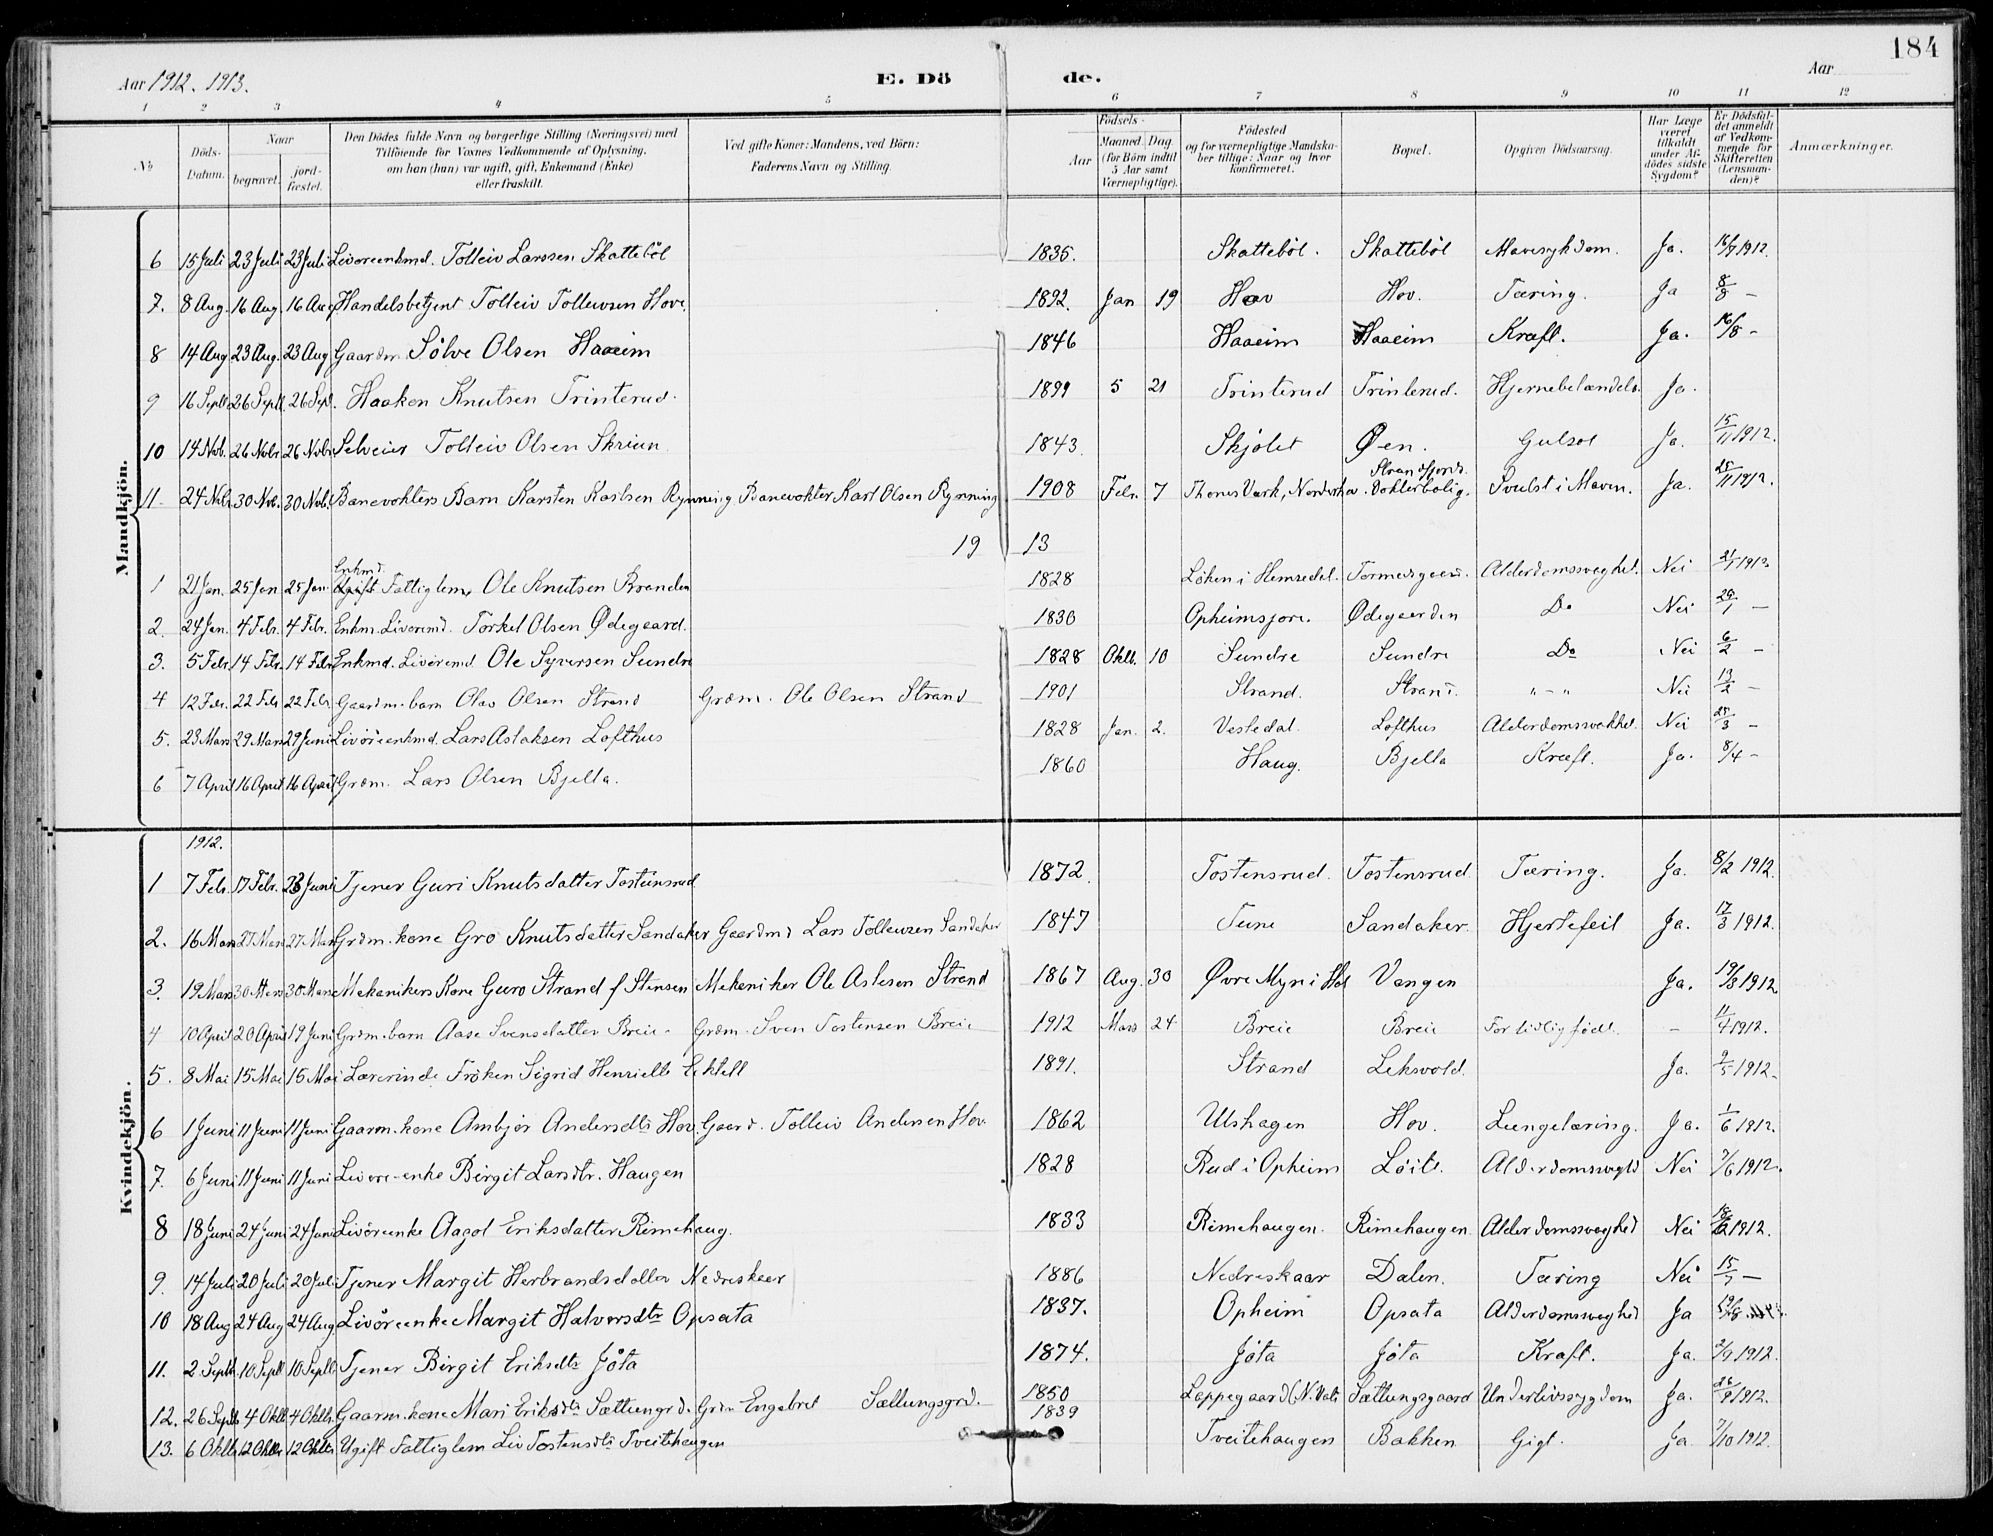 184
Aar 1912. 1913.
E. Dö de.
Aar
1 2 3 4 5 6 7 8 9 10 11 12
No
Döds-Datum.
Naar
begravet.
jord-fæstet.
Den Dödes fulde Navn og borgerlige Stilling (Næringsvei) med Tilföiende for Voxnes Vedkommende af Oplysning, om han (hun) var ugift, gift, Enkemand (Enke) eller fraskilt.
Ved gifte Koner: Mandens, ved Börn: Faderens Navn og Stilling.
Födsels-
Aar
Maaned. Dag.
(for Börn indtil 5 Aar samt Værnepligtige).
Födested og for værnepligtige Mandskaber tillige: Naar og hvor konfirmeret.
Bopæl.
Opgiven Dödsaarsag.
Har Læge været tilkaldt under Afdödes sidste Sygdom?
Er Dödsfaldet anmeldt af Vedkommende for Skifteretten (Lensmanden)?
Anmærkninger.
Mandkjön.
6 15 Juli 23 Juli 23 Juli Livöreenkmd. Tolleiv Larssen Skattebøl 1835. Skattebøl. Skattebøl Mavesykdom. Ja. 16/7 1912.
7. 8 Aug. 16 Aug. 16 Aug Handelsbetjent Tolleiv Tolleivsen Hove. 1892. Jan 19 Hov Hov. Tæring. Ja 8/8 –
8 14 Aug 23 Aug. 23 Aug Gaardm. Sölve Olsen Haaeim 1846 Haaeim Haaeim Kræft. Ja. 16/8 –
9 16 Septb. 26 Septb. 26 Sept. Haaken Knutsen Trinterud. 1899 5 21 Trinterud Trinterud. Ja.
10 14 Nob. 26 Nobr. 26 Nobr. Selveier Tolleiv Olsen Skriun 1843 Skjølet Øen. Gulsot Ja. 15/11 1912.
11 24 Nobr. 30 Nob. 30 Nob. Banevokters Barn Karsten Karlsen Rynning Banevokter Karl Olsen Rynning 1908 Febr. 7 Thones Værk, Strandfjords. Vokterbolig. Svulst i Maven. Ja. 25/11 1912.
19 13
1 21 Jan. 25 Jan 25 Jan. Enkmd. Fattiglem, Ole Knutsen Branden 1828 Løken i Hemsedal. Alderdomssvaghet. Nei 21/1 1913
2. 24 Jan. 4 Febr. 4 Febr. Enkm. Torkel Olsen Ødegaard. 1830 Opheimsjore. Ødegaarden Do Nei 29/1 –
3. 5 Febr. 14 Febr. 14 Febr Enkmd. Ole Syversen Sundre 1828 Oktb. 10 Sundre Sundre Do Nei 6/2 –
4 12 Febr. 22 Febr 22 Febr. Gaardm. barn Olav Olsen Strand Grdm. Ole Olsen Strand 1901 Strand. Strand. " – " Nei 13/2 –
5. 23 Mars 29 Mars 29 Juni Livöreenkmd. Lars Aslaksen Lofthus 1828 Jan. 2. Vestedal. Lofthus Alderdomssvakhet. Nei 25/3 –
6 7 April 16 April 16 April Grdm. Lars Olsen Bjella. 1860 Haug. Bjella Kræft. Ja. 8/4 –
Kvindekjön.
1912.
1 7 Febr. 17 Febr. 23 Juni Tjener Guri Knutsdatter Tosteinsrud 1872. Tostensrud. Tostensrud. Tæring. Ja. 8/2 1912.
2. 16 Mars 27 Mars 27 Mars Grdm. kone Gro Knutsdatter Sandaker Gaardmd Lars Tolleivsen Sandaker 1847 Tune Sandaker. Hjertefeil Ja. 17/3 1912.
3. 19 Mars 30 Mars 30 Mars Mekanikers Kone Guro Strand f Stensen Mekaniker Ole Aslesen Strand 1867 Aug. 30 Øvre Myn i Hol Vangen Ja. 19/3 1912.
4 10 April 20 April 19 Juni Grdm. barn Aase Svensdatter Breie Grdm. Sven Tostensen Breie 1912 Mars 24 Breie Breie For tidlig födt. – 11/4 1912.
5. 8 Mai 15 Mai 15 Mai Lærerinde Fröken Sigrid Henriette 1891. Strand Leksvold. Ja. 9/5 1912.
6 1 Juni 11 Juni 11 Juni Gaarm. kone Ambjör Andersdtr Hov. Gaard. Tolleiv Andersen Hov. 1862 Ulshagen Hov. Lungetæring. Ja. 1/6 1912.
7. 6 Juni 11 Juni 11 Juni Livöre-enke Birgit Larsdtr. Haugen 1828 Rud i Opheim Löite. Alderdomssvaghd Nei 7/6 1912.
8 18 Juni 24 Juni 24 Juni Livöreenke Aagot Eriksdatter Rimehaug. 1833 Rimehaugen. Rimehaugen. Alderdomssvaghed Nei 18/6 1912.
9. 14 Juli 20 Juli 20 Juli Tjener Margit Herbrandsdatter Nedreskaar 1886 Nedreskaar Dalen. Tæring Nei 15/7 –
10 18 Aug 24 Aug 24 Aug. Livöreenke Margit Halvorsdtr Opsata 1837. Opheim Opsata Alderdomssvaghed Ja 19/8
11. 2 Septb. 10 Septb 10 Septb. Tjener Birgit Eriksdtr Jöta 1874. Jöta Jöta Kræft. Ja. 3/9 1912.
12. 26 Septb. 4 Oktb 4 Oktbr. Gaarm. kone Mari Eriksdtr Sættungrd. Grdm Engebret Sættungsgrd. 1850 Loppegaard (N. Aal) Sættungsgaard Underlivssygdom Ja. 26/9 1912.
13. 6 Oktb. 12 Oktbr. 12 Oktbr Ugift Fattiglem Liv Tostensdtr Tveitehaugen 1839 Tveitehaugen Bakken Gigt. Ja. 7/10 1912.